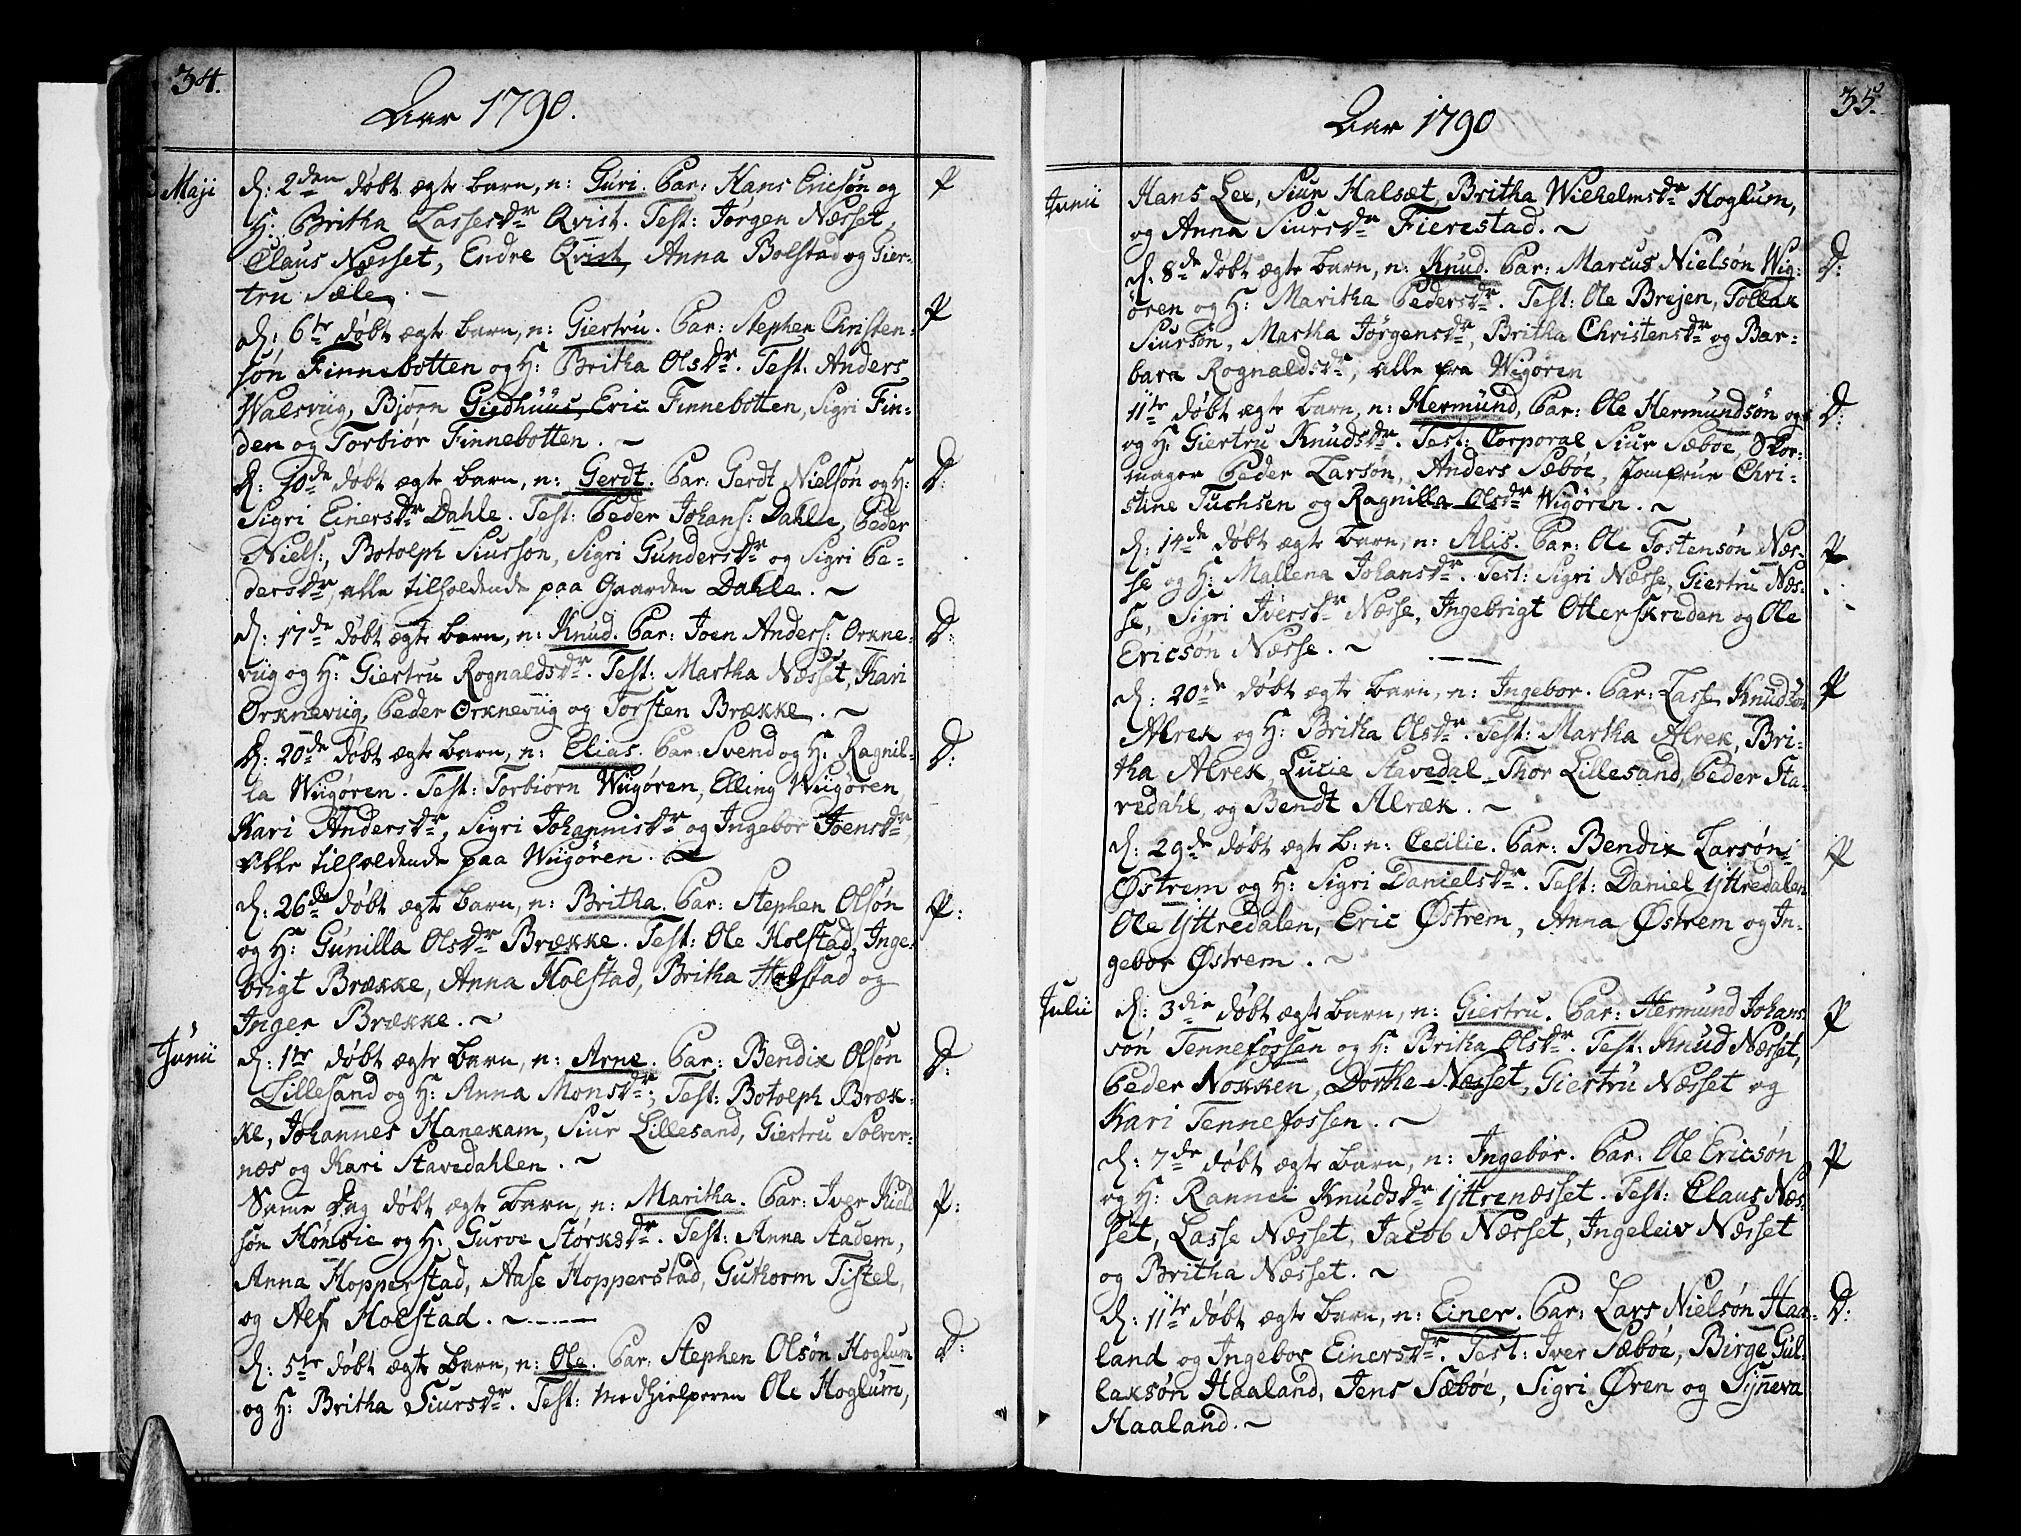 34.
Aar 1790.
Maji
d: 2den døbt ægte barn, n: Guri. Par: Hans Ericsøn og P
H: Britha Lassesdr Qvist. Test: Jørgen Næsset,
Claus Næsset, Endre Qvist, Anna Bolstad og Gier-
tru Sæle. -
d: 6te døbt ægte barn, n: Giertru. Par: Stephen Christen- P
søn Finnebotten og H: Britha Olsdr. Test: Anders
Walsviig, Bjørn Eric Finnebotten, Sigri Fin-
den og Torbiør Finnebotten. ~
d: 10de døbt ægte barn, n: Gerdt. Par: Gerdt Nielsøn og H: D:
Sigri Einersdr Dahle. Test: Peder Johans: Dahle, Peder
Niels:, Botolph Siursson, Sigri Gundersdr og Sigri Pe-
dersdr, alle tilholdende paa Gaarden Dahle. ~
d: 17de døbt ægte barn, n: Knud. Par: Joen Anders: Orkne- D:
viig og H: Giertru Rognaldsdr. Test: Martha Næsset, Kari
Orkneviig, Peder Orkneviig og Torsten Brække. ~
d: 20de døbt ægte barn, n: Elias. Par: Svend og H: Ragnil- D:
la Wiigøren. Test: Torbiørn Wiigøren, Elling Wiigøren
Kari Andersdr, Sigri Johannisdr og Ingebor Joensdr,
alle tilholdende paa Wiigøren. ~
d: 26de døbt ægte barn, n: Britha. Par: Stephen Olsøn P:
og H: Gunilla Olsdr Brække. Test: Ole Holstad, Inge-
brigt Brække, Anna Holstad, Britha Holstad og
Inger Brække. ~
Junii
d: 1te døbt ægte barn, n: Arne. Par: Bendix Olsøn D:
Lillesand og H: Anna Monsdr; Test: Botolph Bræk-
ke, Johannes Hanekam, Siur Lillesand, Giertru Solver-
næs og Kari Stavedahlen. ~
Samme Dag døbt ægte barn, n: Maritha. Par: Iver P:
søn Hønsie og H: Gurve Størksdr. Test: Anna Stadem,
Anna Hopperstad, Aase Hopperstad, Guthorm Tistel,
og Alf Holstad. ~
d: 5te døbt ægte barn, n: Ole. Par: Stephen Olsøn Hoglum D:
og H: Britha Siursdr. Test: Medhielperen Ole Hoglum,
35.
Aar 1790
Junii
Hans Lee, Siur Halsæt, Britha Wielhelmsdr Hoglum,
og Anna Siursdr Fierestad. ~
d: 8de døbt ægte barn, n: Knud. Par: Marcus Nielsøn Wig- D:
øren og H: Maritha Pedersdr. Test: Ole Brejen, Tollak
Siursøn, Martha Jørgensdr, Britha Christensdr og Bar-
bara Rognaldsdr, alle fra Wigøren
11te døbt ægte barn, n: Hermund, Par: Ole Hermundsøn og D:
og H: Giertru Knudsdr. Test: Corporal Siur Sæbøe, Skor-
mager Peder Larsøn, Anders Sæbøe, Jomfrue Chri-
stine Tuchsen og Ragnilla Olsdr Wigøren. ~
d: 14de døbt ægte barn, n: Alis. Par: Ole Tostensøn Næs- P
se og H: Mallena Johansdr. Test: Sigri Næsse, Giertru Næs-
se, Sigri Iversdr Næsse, Ingebrigt Otterskreden og Ole
Ericsøn Næsse. ~
d: 20de døbt ægte barn, n: Ingebor. Par: Lasse Knudsøn P
Alrek og H: Britha Olsdr. Test: Martha Alrek, Bri-
tha Alrek, Lucie Stavedal, Thor Lillesand, Peder Sta-
vedahl, og Bendt Alræk. ~
d: 29de døbt ægte b: n: Cecilie. Par: Bendix Larsøn P
Østrem og H: Sigri Danielsdr. Test: Daniel Yttredalen
Ole Yttredalen, Eric Østrem, Anna Østrem og In-
gebor Østrem. ~
Julii
d: 3die døbt ægte barn, n: Giertru. Par: Hermund Johans P
søn Tennefossen og H: Britha Olsdr. Test: Knud Næsset,
Peder Nokken, Dorthe Næsset, Giertru Næsset og
Kari Tennefossen. ~
d: 7de døbt ægte barn, n: Ingebor. Par: Ole Ericsøn P
og H: Rannei Knudsdr Yttrenæsset. Test: Claus Næs-
set, Lasse Næsset, Jacob Næsset, Ingeleiv Næsset
og Britha Næsset. ~
d: 11te døbt ægte barn, n: Einer. Par: Lars Nielsøn Haa- D:
land og Ingebor Einersdr. Test: Iver Sæbøe, Birge Gul-
laksøn Haaland, Jens Sæbøe, Sigri Øren og Synneva
Haaland. ~